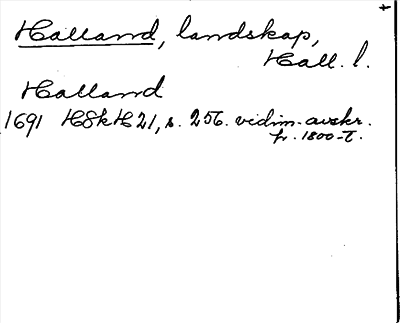 Halland, landskap,
Hall. l.
Halland
1691 HSkH 21, s. 256. vidim. avskr.
fr. 1800-t.